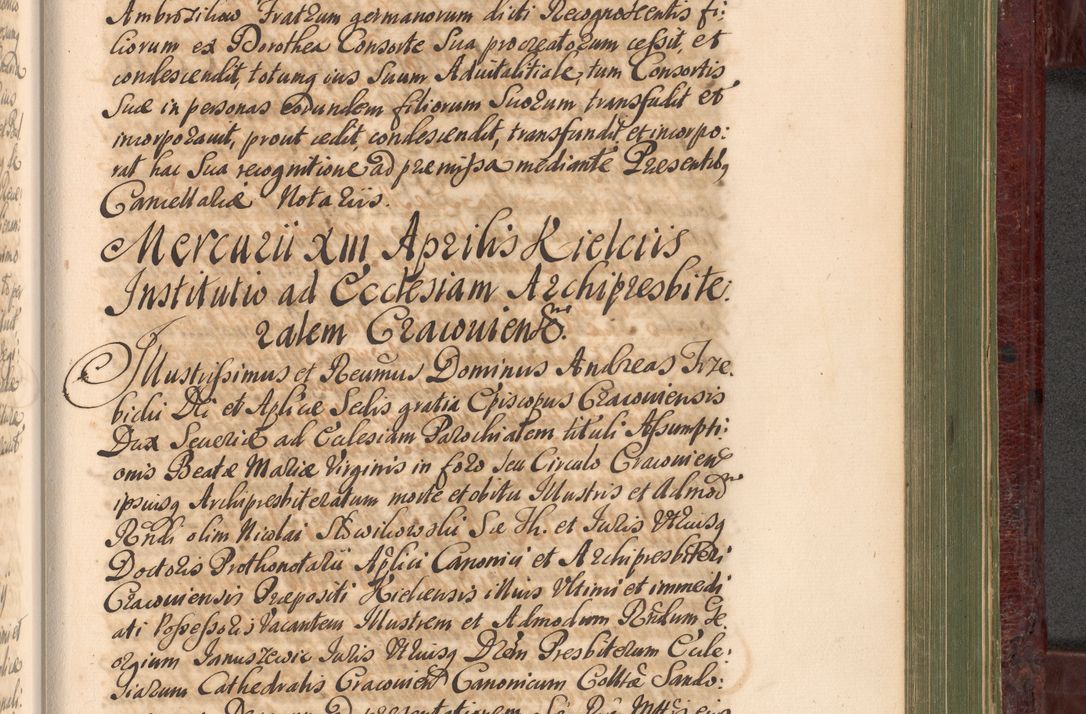 Ambrozilio Fratrum germanorum dicti Recognoscentis fi:
liorum ex Dorothea Consorte Sua procreatorum cessit, et
condescendit, totumq ius Suum Advitalitiale, tum Consortis
Suæ in personas eorundem filiorum Suorum transfudit et
incorporavit, prout cedit, condescendit, transfundit, et incorpo:
rat hac Sua recognitione ad præmissa mediante Præsentibq
Cancellariæ Notariis.
Mercurii XIII Aprilis Kielciis
Institutio ad Ecclesiam Archipresbite:
ralem Cracouien̄.
Illustrissimus et Reum̄us Dominus Andreas Trze:
bicki Dei et Aplicæ Sedis gratia Episcopus Cracouiensis
Dux Seueriæ ad Ecclesiam Parochialem tituli Assumpti:
onis Beatæ Mariæ Virginis in foro seu Circulo Cracouien̄
ipsiusq Archipresbiteratum morte et obitu Illustris et Admod̄
Rn̄di olim Nicolai Słowikowski S. Th. et Iuris Vtriusq
Doctoris Prothonotarii Aplici Canonici et Archipresbiteri
Cracouiensis Præpositi Kielcensis illius Vltimi et immedi
ati Possessoris Vacantem Illustrem et Admodum Rn̄dum Ge
orgium Januszewic Iuris Vtriusq Drem Presbiterum Eccle:
siarum Cathedralis Cracouien̄ Canonicum Colltæ Sando: